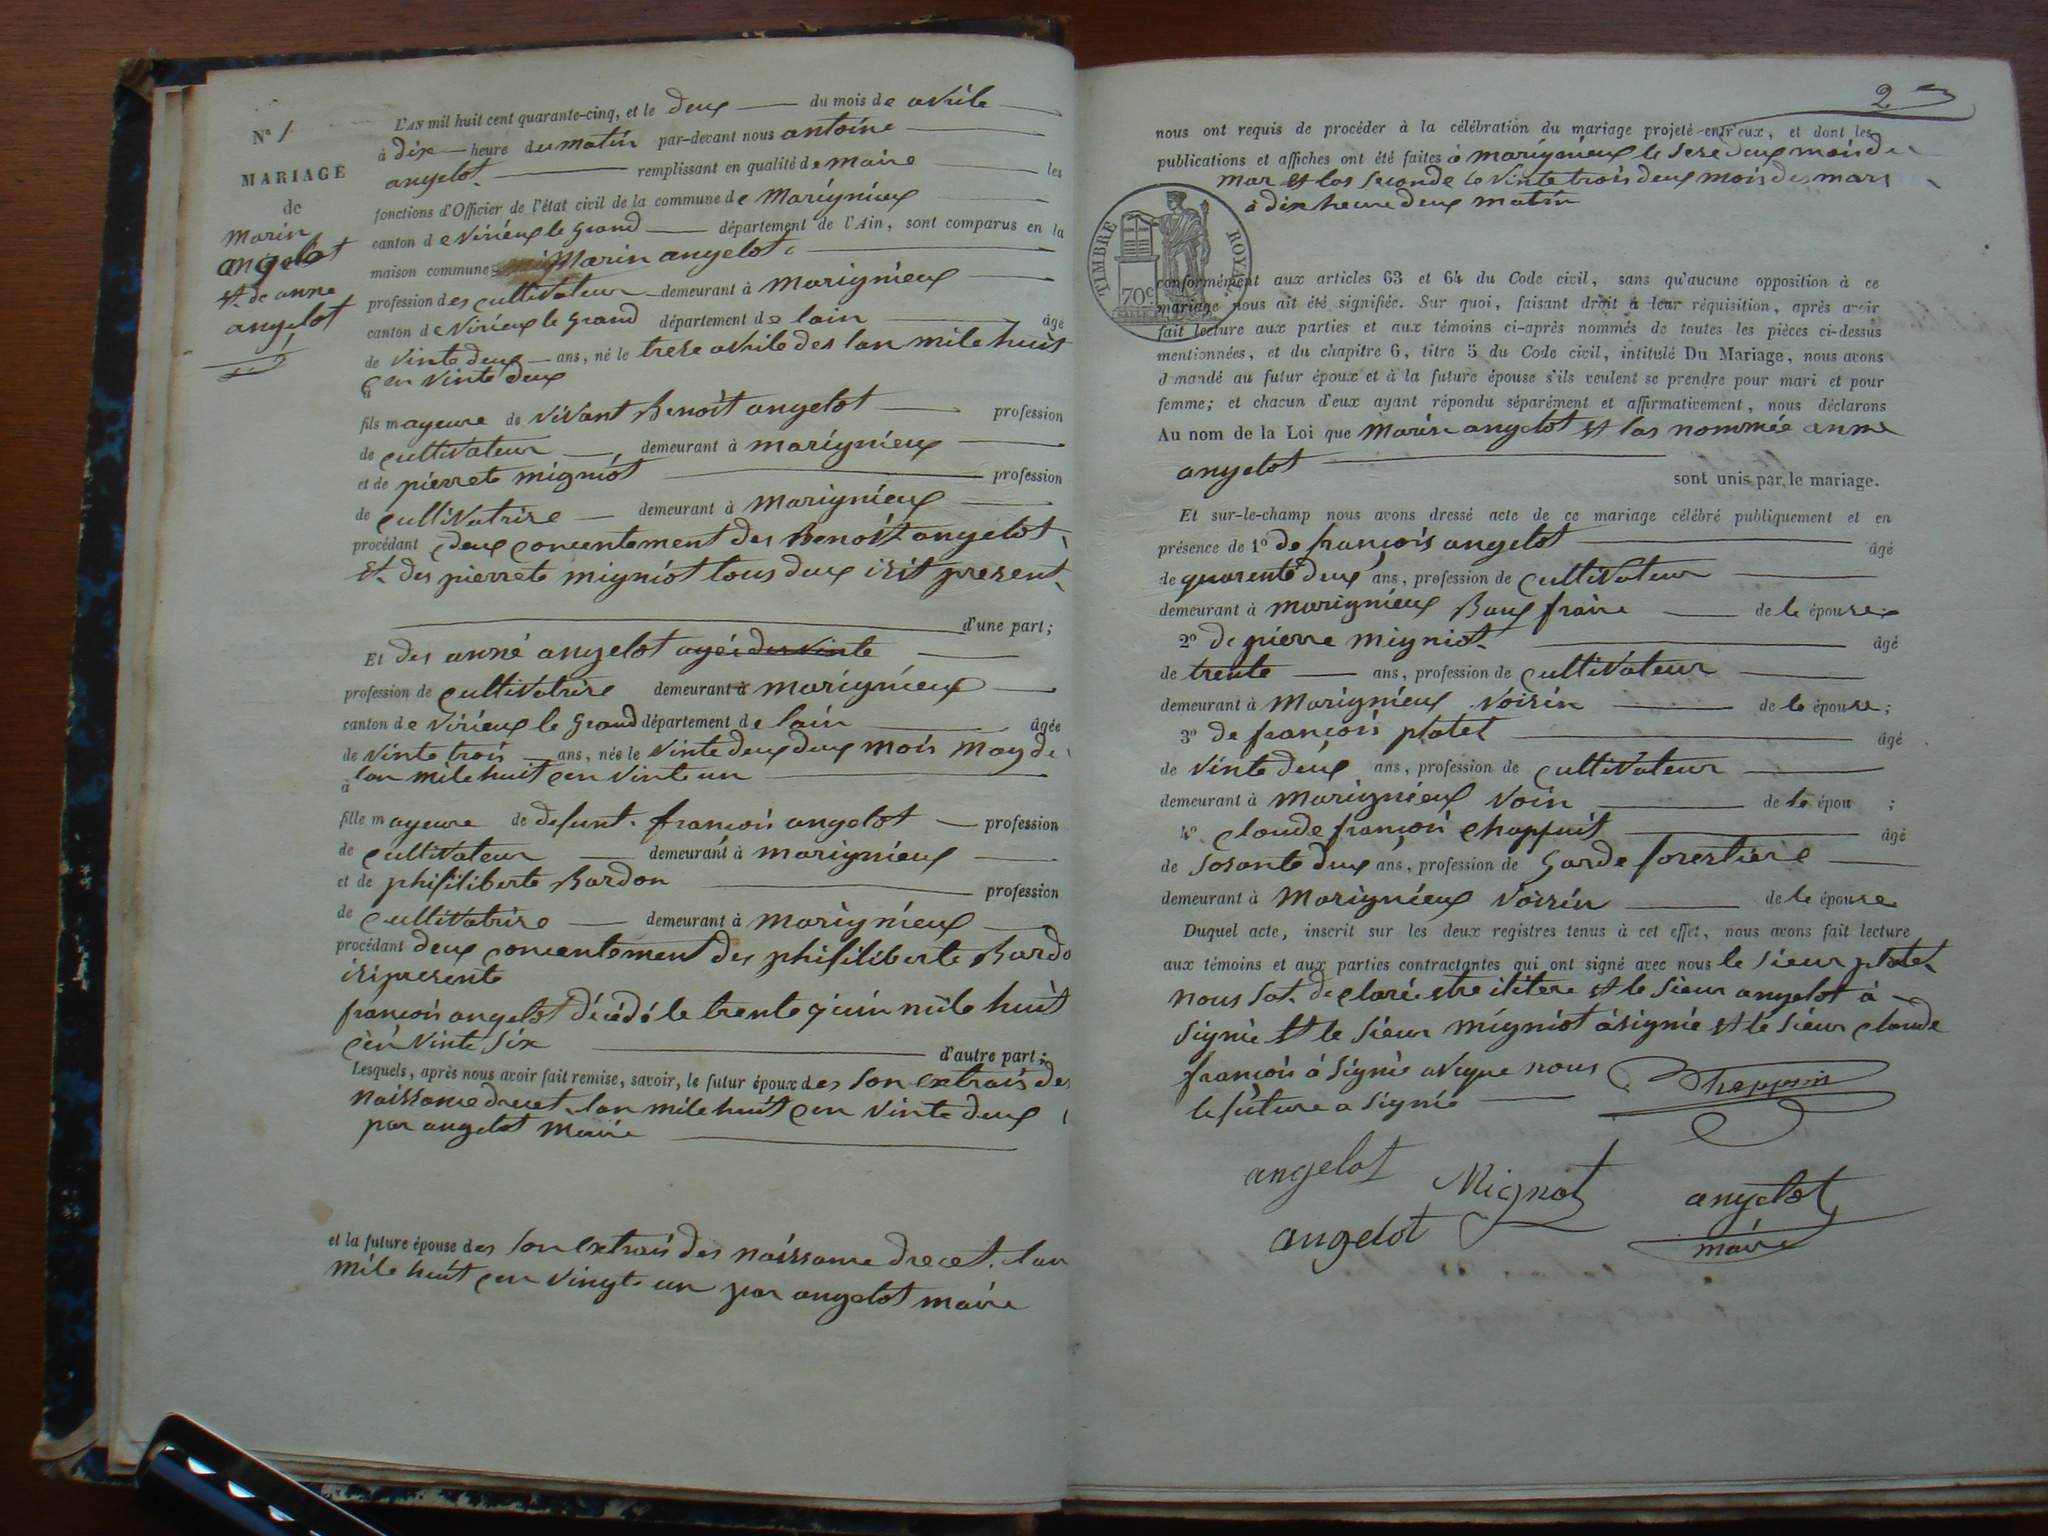 N° 1
MARIAGE
de
Marin
angelot
et de anne
angelot
L'AN mil huit cent quarante-cinq, et le deux du mois de avrile
à dix heure du matin par-devant nous antoine
angelot remplissant en qualité de maire les
fonctions d'Officier de l'état civil de la commune de Marignieux
canton de virieux le grand département de l'Ain, sont comparus en la
maison commune Marin angelot
profession des cultivateur demeurant à marignieux
canton de Virieux le grand département de lain âgé
de vinte deux ans, né le trese avrile des lan mile huit
à cen vinte deux
fils mayeure de vivant Benoit angelot profession
de cultivateur demeurant à marignieux
et de pierrete migniot profession
de cultivatrise demeurant à marignieux
procédant deux concentement des Benoit angelot
et des pierrete migniot tous deux isit present
d'une part;
Et des anne angelot agée des vinte
profession de cultivatrise demeurant à marignieux
canton de virieux le grand département de lain âgée
de vinte trois ans, née le vinte deux deux mois may de
à lan mile huit cen vinte un
fille mayeure de defunt françois angelot profession
de cultivateur demeurant à marignieux
et de phisiliberte Bardon profession
de cultivatrise demeurant à marignieux
procédant deux concentement des phisiliberte Bardo
isi presente
françois angelot décédé le trente juin mile huit
cen vinte six d'autre part;
Lesquels, après nous avoir fait remise, savoir, le futur époux des son extrais des
naissance drecet lan mile huit cen vinte deux
par angelot maire
et la future épouse des son extrais des naissance drecet lan
mile huit cen vingt un par angelot maire
2
nous ont requis de procéder à la célébration du mariage projeté entr'eux, et dont les
publications et affiches ont été faites à marignieux le sese deux mois de
mar et las seconde le vinte trois deux mois des mars
à dix heure deux matin
TIMBRE ROYAL
70c
conformément aux articles 63 et 64 du Code civil, sans qu'aucune opposition à ce
mariage nous ait été signifiée. Sur quoi, faisant droit à leur réquisition, après avoir
fait lecture aux parties et aux témoins ci-après nommés de toutes les pièces ci-dessus
mentionnées, et du chapitre 6, titre 5 du Code civil, intitulé Du Mariage, nous avons
demandé au futur époux et à la future épouse s'ils veulent se prendre pour mari et pour
femme; et chacun d'eux ayant répondu séparément et affirmativement, nous déclarons
Au nom de la Loi que Marin angelot et las nommée anne
angelot sont unis par le mariage.
Et sur-le-champ nous avons dressé acte de ce mariage célébré publiquement et en
présence de 1° de françois angelot âgé
de quarente deux ans, profession de cultivateur
demeurant à marignieux Baux fraire de le épouse
2° de pierre migniot âgé
de trente ans, profession de cultivateur
demeurant à Marignieux voisin de le épouse;
3° de françois platet âgé
de vinte deux ans, profession de cultivateur
demeurant à Marignieux voin de le épou ;
4° claude françois chappuit âgé
de sosante deux ans, profession de garde forestiere
demeurant à Marignieux voisin de le épouse
Duquel acte, inscrit sur les deux registres tenus à cet effet, nous avons fait lecture
aux témoins et aux parties contractantes qui ont signé avec nous le sieur platet
nous sat declaré estre ilitere et le sieur angelot à
signie et le sieur migniot à signie et le sieur claude
françois à signie aveque nous
le future a signie
Chappuis
angelot Mignot angelot
angelot maire